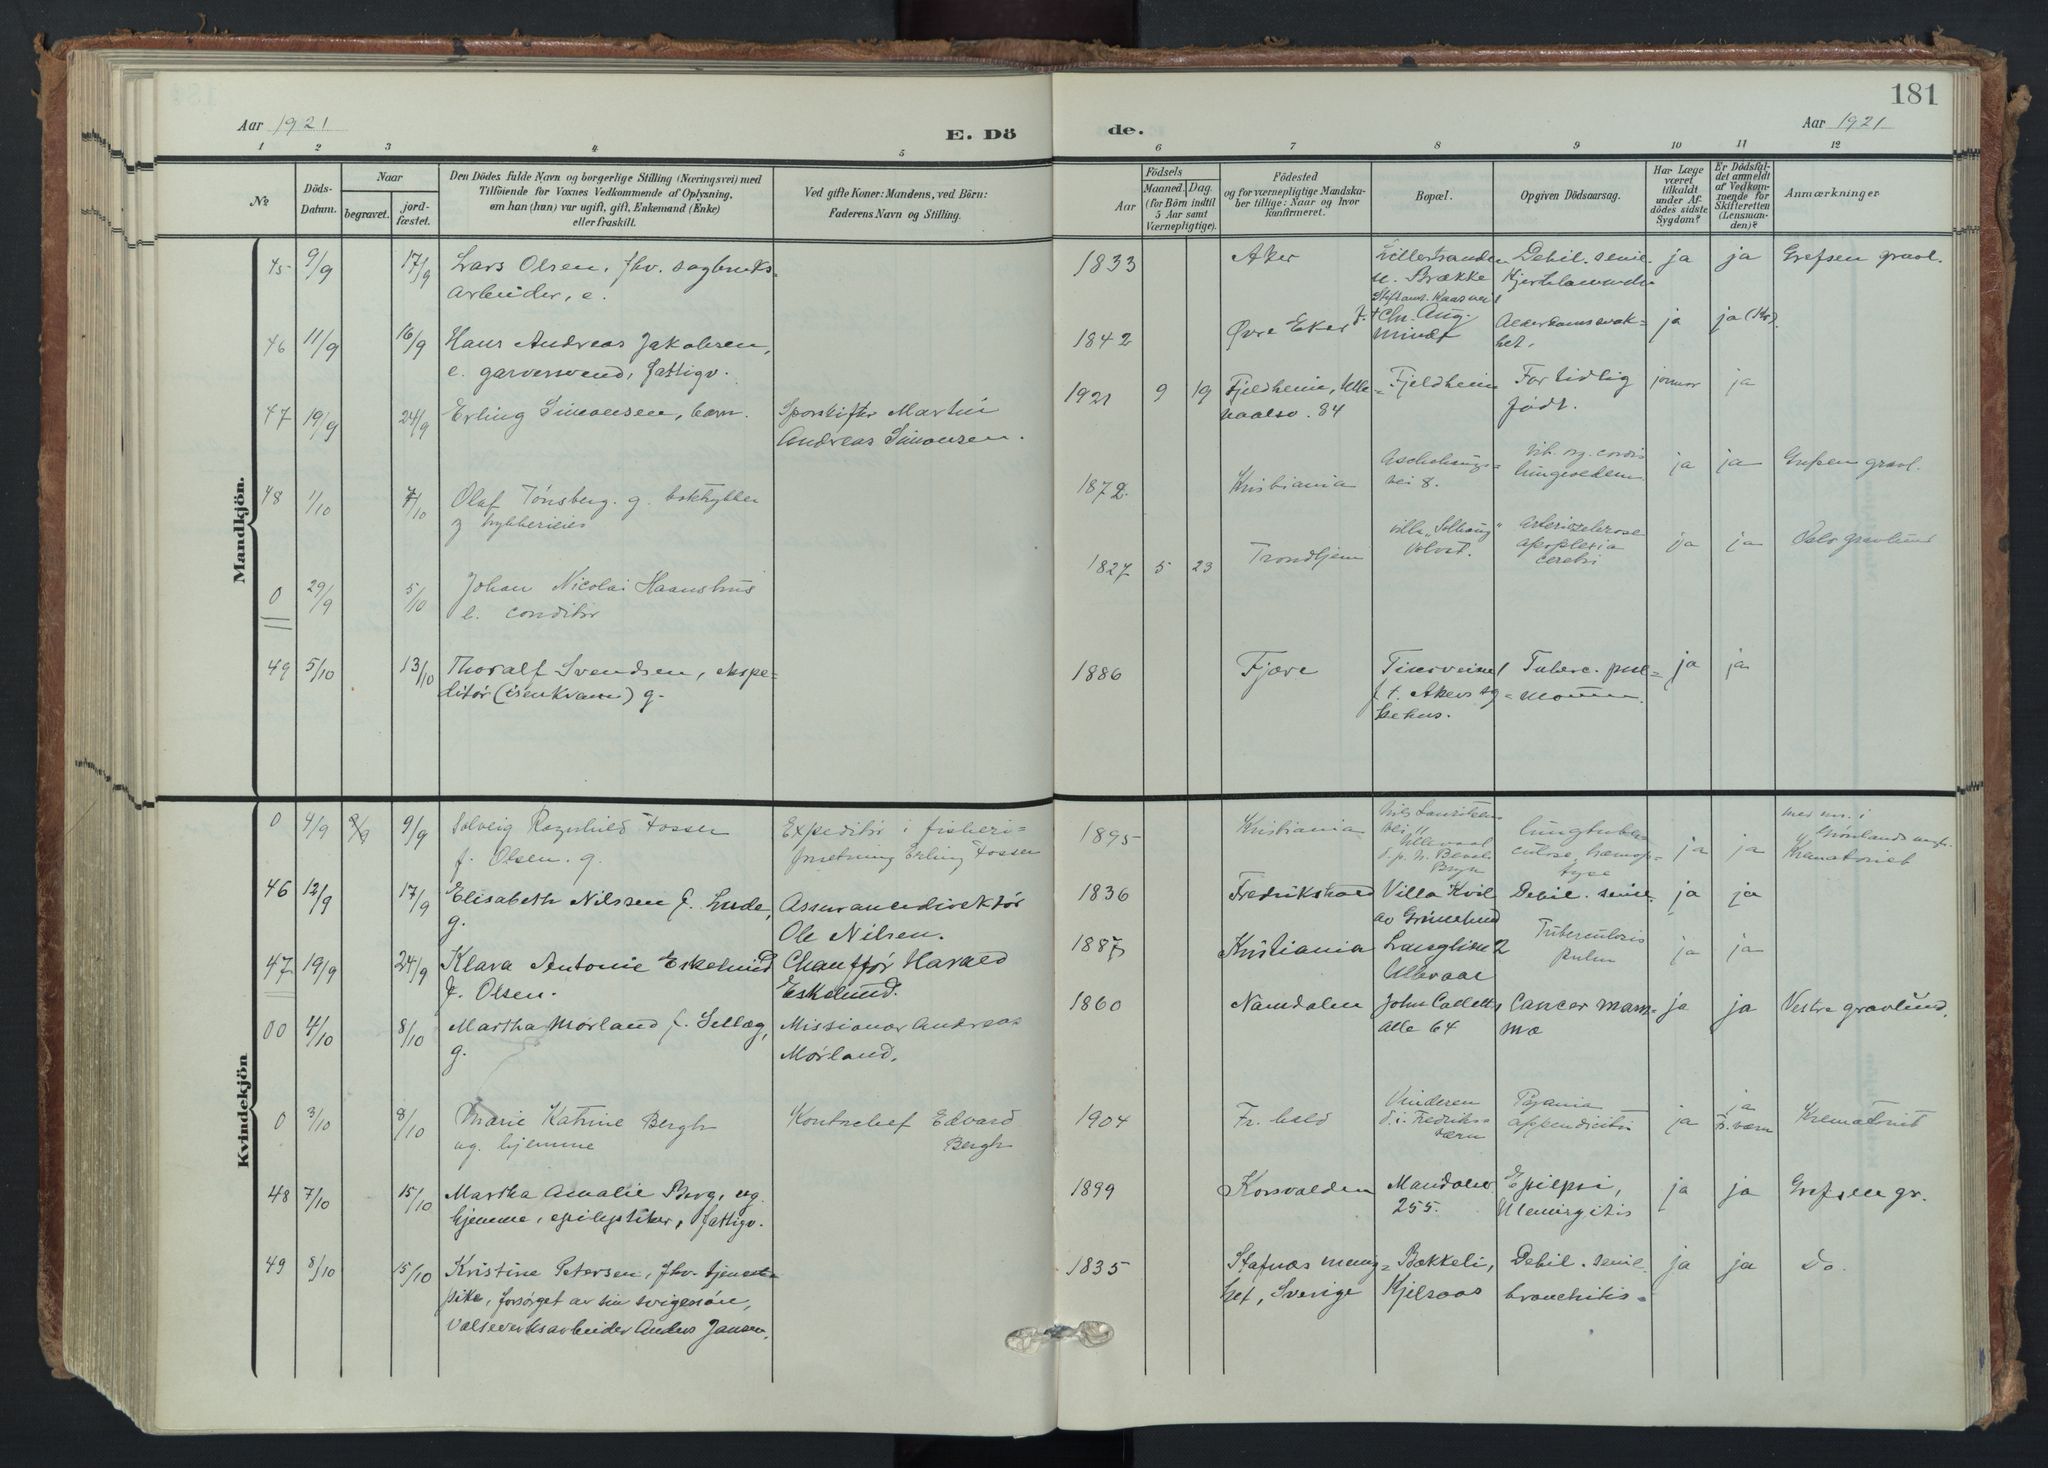 181
Aar 1921
E. Dö
de.
Aar 1921
1 2 3 4 5 6 7 8 9 10 11 12
No.
Döds-
Datum.
Naar
begravet.
jord-
fæstet.
Den Dödes fulde Navn og borgerlige Stilling (Næringsvei) med
Tilföiende for Voxnes Vedkommende af Oplysning,
om han (hun) var ugift, gift, Enkemand (Enke)
eller fraskilt.
Ved gifte Koner: Mandens, ved Börn:
Faderens Navn og Stilling.
Födsels
Aar
Maaned. Dag.
(for Börn indtil
5 Aar samt
Værnepligtige).
Födested
og for værnepligtige Mandsku-
ber tillige: Naar og hvor
konfirmeret.
Bopæl.
Opgiven Dödsaarsag.
Har Læge
været
tilkaldt
under Af-
dödes sidste
Sygdom?
Er Dödsfal-
det anmeldt
af Vedkom-
mende for
Skifteretten
(Lensman-
den)?
Anmærkninger
Mandkjön.
45 9/9 17/9 Lars Olsen, fhv. sagbruks-
arbeider, e.
1833 Aker Lillestranden
n. Brække Debil. senil.
ja ja Grefsen gravl.
46 11/9 16/9 Hans Andreas Jakobsen,
e. garversvend, fattigv.
1842 Øvre Eker Chr. Aug.
minde Alderdomssvak-
het. ja ja (Kr).
47 19/9 24/9 Erling Simonsen, barn. Sporskifter Martin
Andreas Simonsen.
1921 9 19 Fjeldheim, Ulle-
vaalsv. 84 Fjeldheim For tidlig
født. jormor ja
48 1/10 7/10 Olaf Tønsberg. g. boktrykker
1872. Kristiania Aschehougs-
vei 8. Vit. org. cordis
lungeødem ja ja Grefsen gravl.
0 29/9 5/10 Johan Nicolai Haanshus
e. conditor
1827 5 23 Trondhjem villa "Solhaug"
Volvat. Arteriosclerose
apoplexia
cerebri ja ja Oslo gravlund
49 5/10 13/10 Thoralf Svendsen, ekspe-
ditør (isenkram) g.
1886 Fjære
f. t. Akers sy-
kehus. Tuberc. pul-
monum. ja ja
Kvindekjön
0 4/9 8/9 9/9 Solveig Ragnhild Fossen
f. Olsen. g. Expeditør i fiskeri-
forretning Erling Fossen
1895 Kristiania Nils Lauritsens
vei
Ullevaal
d. p. h. lungtuber-
culose, hæmop-
tyse ja ja
Grønlands
Krematoriet
46 12/9 17/9 Elisabeth Nilssen f. Lunde,
g. Assurancedirektør
Ole Nilsen.
1836 Fredrikshald Villa Kvil
av Grimelund Debil. senil. ja ja
47 19/9 24/9 Klara Antonie Eskelund
f. Olsen. Chauffør Harald
Eskelund.
1887 Kristiania Langlien 2
Ullevaal Tuberculosis
pulm ja ja
00 4/10 8/10 Martha Mørland f. Sellæg,
g. Missionær Andreas
Mørland.
1860 Namdalen John Colletts
alle 64 Cancer mam-
mæ ja ja Vestre gravlund.
0 3/10 8/10 Marie Katrine Bergh
ug. hjemme Kontrachef Edvard
Bergh
1904 Fr.hald Vinderen
d. i. Fredriks-
værn Pyæmia
appendicitis ja ja
Fr. værn Krematoriet
48 7/10 15/10 Martha Amalie Berg, ug.
hjemme, epileptiker, fattigv.
1899 Korsvalden Mandalen
255. Epilepsi,
Meningitis ja ja Grefsen gr.
49 8/10 15/10 Kristine Petersen, fhv. tjeneste-
pike, forsørget av sin svigersøn,
valseverksarbeider Anders Jansen.
1835 Stafnæs menig-
het, Sverige Bakkeli,
Kjelsaas Debil. senil.
bronchitis. ja ja Do.